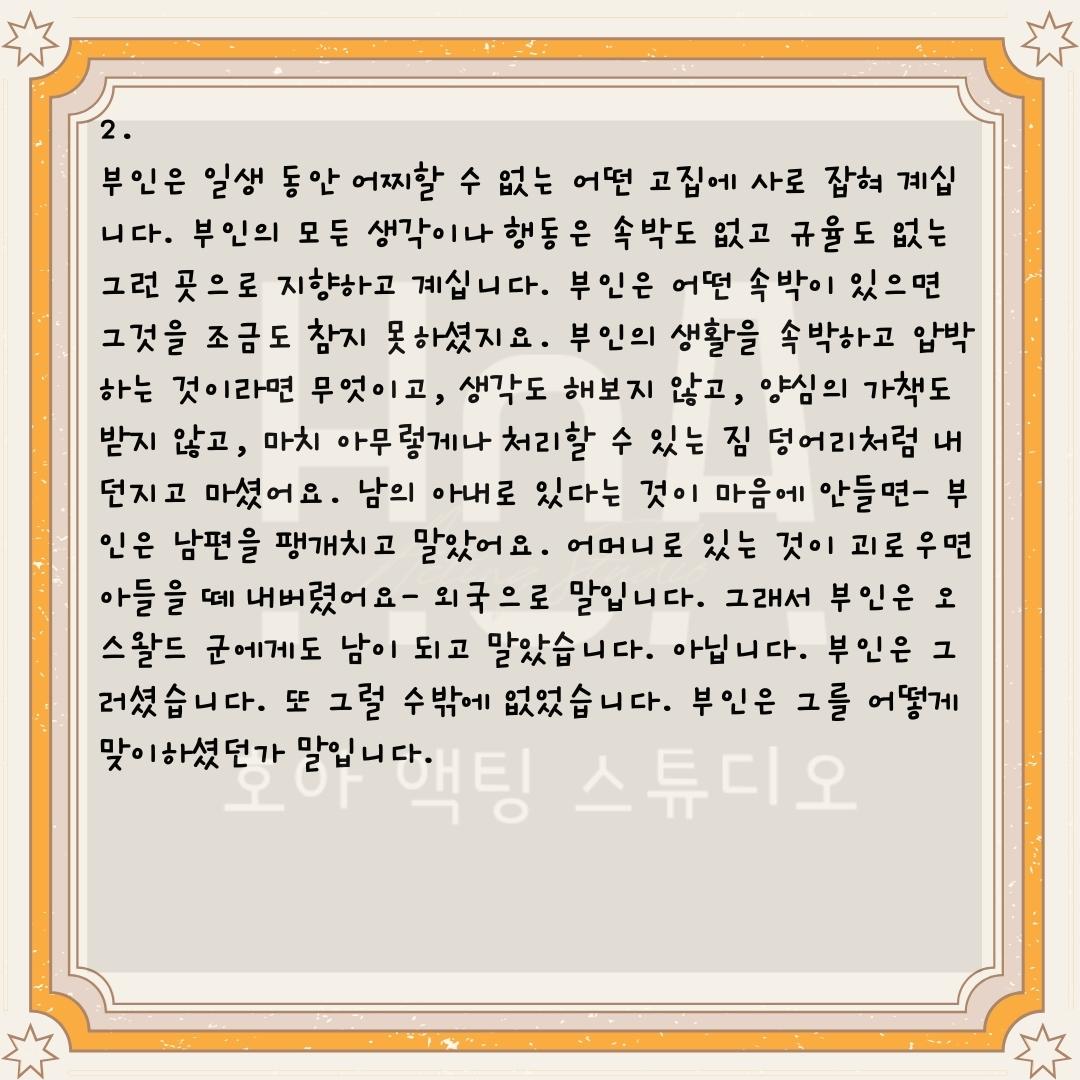 2.
부인은 일생 동안 어찌할 수 없는 어떤 고집에 사로 잡혀 계십
니다. 부인의 모든 생각이나 행동은 속박도 없고 규율도 없는
그런 곳으로 지향하고 계십니다. 부인은 어떤 속박이 있으면
그것을 조금도 참지 못하셨지요. 부인의 생활을 속박하고 압박
하는 것이라면 무엇이고, 생각도 해보지 않고, 양심의 가책도
받지 않고, 마치 아무렇게나 처리할 수 있는 짐 덩어리처럼 내
던지고 마셨어요. 남의 아내로 있다는 것이 마음에 안들면- 부
인은 남편을 팽개치고 말았어요. 어머니로 있는 것이 괴로우면
아들을 떼 내버렸어요- 외국으로 말입니다. 그래서 부인은 오
스왈드 군에게도 남이 되고 말았습니다. 아닙니다. 부인은 그
러셨습니다. 또 그럴 수밖에 없었습니다. 부인은 그를 어떻게
맞이하셨던가 말입니다.
HnA
Acting Studio
호아 액팅 스튜디오